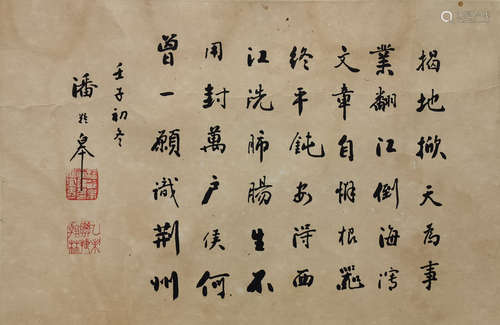 揭地掀天為事
業翻江倒海瀉
文章自慚根器
終平鈍安得西
江洗肺腸生不
用封萬戶侯何
曾一願識荊州
壬子初冬
潘齡皋